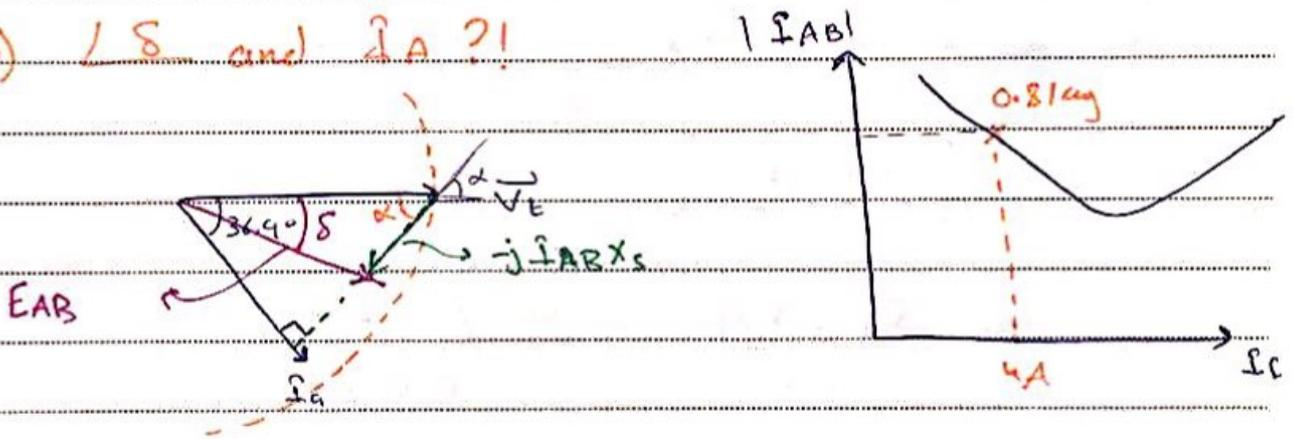 ) ∠δ and ÎA ?!
|ÎAB|
0.8 lag
α V⃗t
36.9° δ α
-j ÎAB Xs
EAB
Îa
4A
If